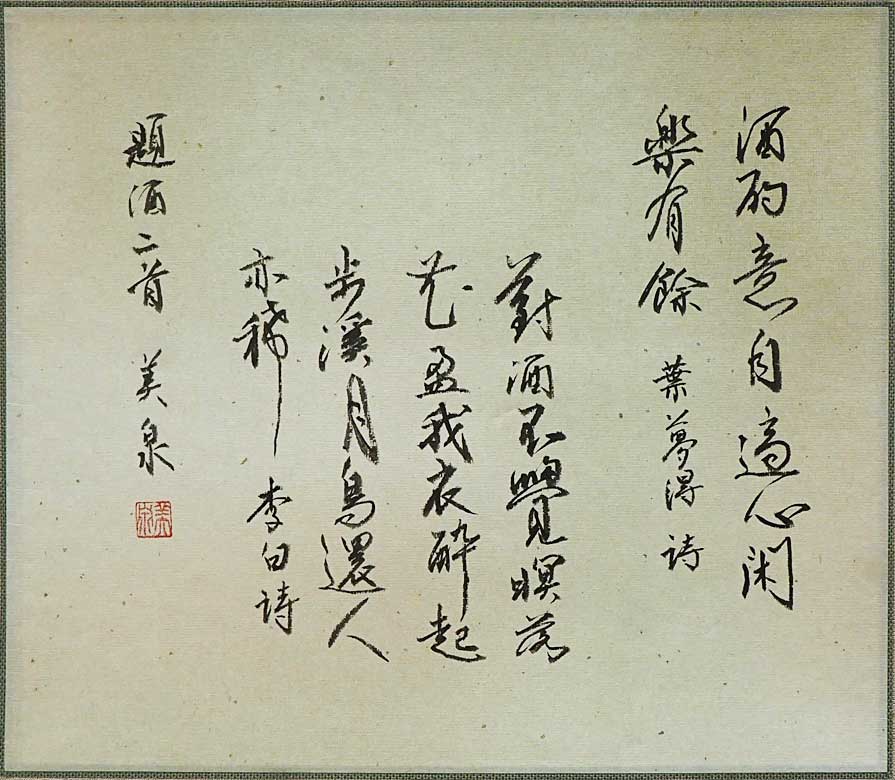 酒酌意自適心閑
樂有餘 葉夢得 詩
對酒不覺暝落
花盈我衣醉起
步溪月鳥還人
亦稀 李白詩
題酒二首 美泉
美泉